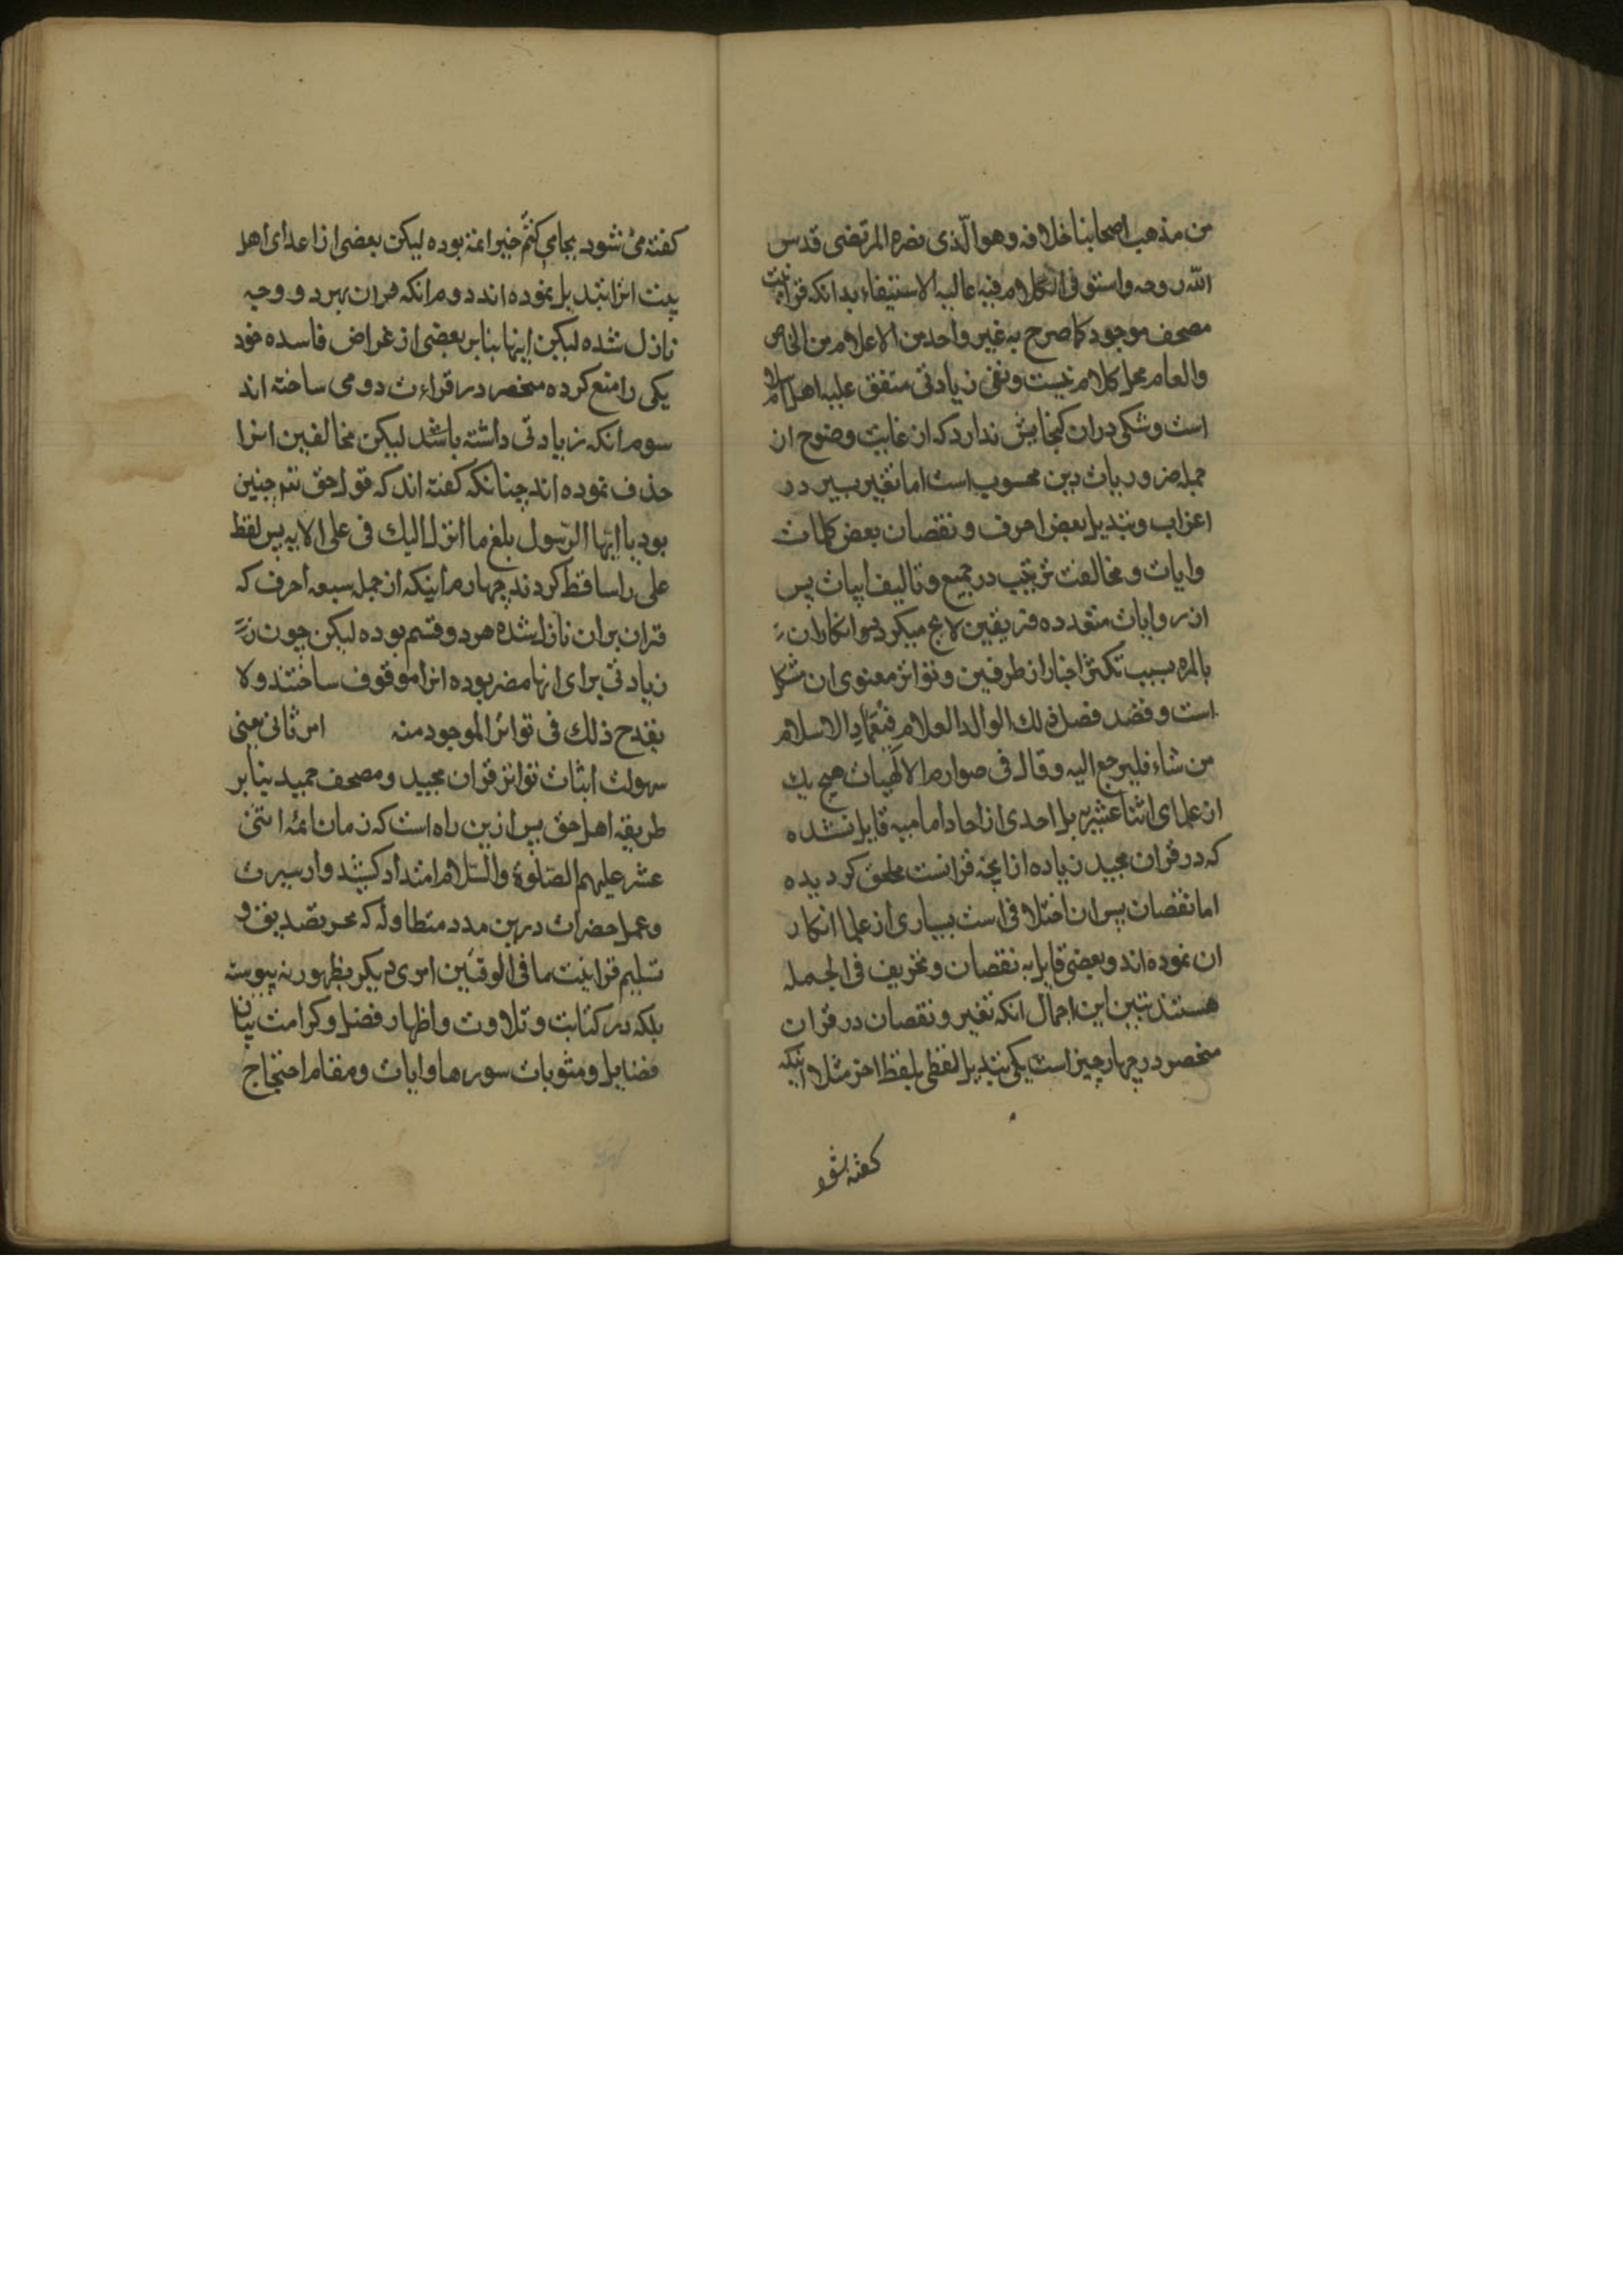 من مذهب اصحابنا خلافه وهو الّذی نصره المرتضی قدس
الله روحه واستوفی الکلام فیه غالیه الاستیفاء بدانکه قرانیت
مصحف موجود کما صرح به غیر واحد من الاعلام من الخاص
والعام محل کلام نیست ونفی زیادتی متفق علیه اهل اسلام
است وشکی دران کنجایش ندارد که از غایت وضوح از
جمله ضروریات دین محسوب است اما تغیر یسیر در
اعراب وتبدیل بعض احرف ونقصان بعض کلمات
وایات ومخالفت ترتیب در جمیع وتالیف ایات پس
از روایات متعدده فریقین لایح میکردد وانکار ان
بالمره بسبب تکثر اخبار از طرفین وتواتر معنوی ان مشکل
است وفصل ذلک الوالد العلام فی عماد الاسلام
من شاء فلیرجع الیه وقال فی صوارم الالهیات هیچ یک
از علمای اثنا عشریه بل احدی از احاد امامیه قایل نشده
که در قران مجید زیاده از انچه قرانست ملحق کردیده
اما نقصان پس ان اختلافی است بسیاری از علما انکار
ان نموده اند وبعضی قایل به نقصان وتحریف فی الجمله
هستند تبین این اجمال انکه تغیر ونقصان در قران
منحصر در چهار چیز است یکی تبدیل لفظی بلفظ اخر مثلا اینکه
کفته شود
کفته می شود بجای کنتم خیر ائمة بوده لیکن بعضی از اعدای اهل
بیت انرا تبدیل نموده اند دوم انکه قران بهر دو وجه
نازل شده لیکن اینها بنابر بعضی از غراض فاسده خود
یکی را منع کرده منحصر در قراءت دومی ساخته اند
سوم انکه زیادتی داشته باشد لیکن مخالفین انرا
حذف نموده اند چنانکه کفته اند که قول حق تعم چنین
بود یا ایّها الرّسول بلغ ما انزل الیک فی علی الایه پس لفظ
علی را ساقط کردند چهارم اینکه از جمله سبعه احرف که
قران بران نازل شده هر دو قسم بوده لیکن چون
زیادتی برای انها مضر بوده انرا موقوف ساختند ولا
یقدح ذلک فی تواتر الموجود منه امر ثانی یعنی
سهولت اثبات تواتر قران مجید ومصحف حمید بنابر
طریقه اهل حق پس ازین راه است که زمان ائمه اثنی
عشر علیهم الصّلوة والسّلام امتداد کشید واز سیرت
وعمل حضرات درین مدد متطاوله که بجز تصدیق و
تسلیم قرانیت ما فی الوقتین امری دیکر بظهور نه پیوسته
بلکه در کتابت وتلاوت واظهار فضل وکرامت بیان
فضایل ومثوبات سورها وایات ومقام احتجاج